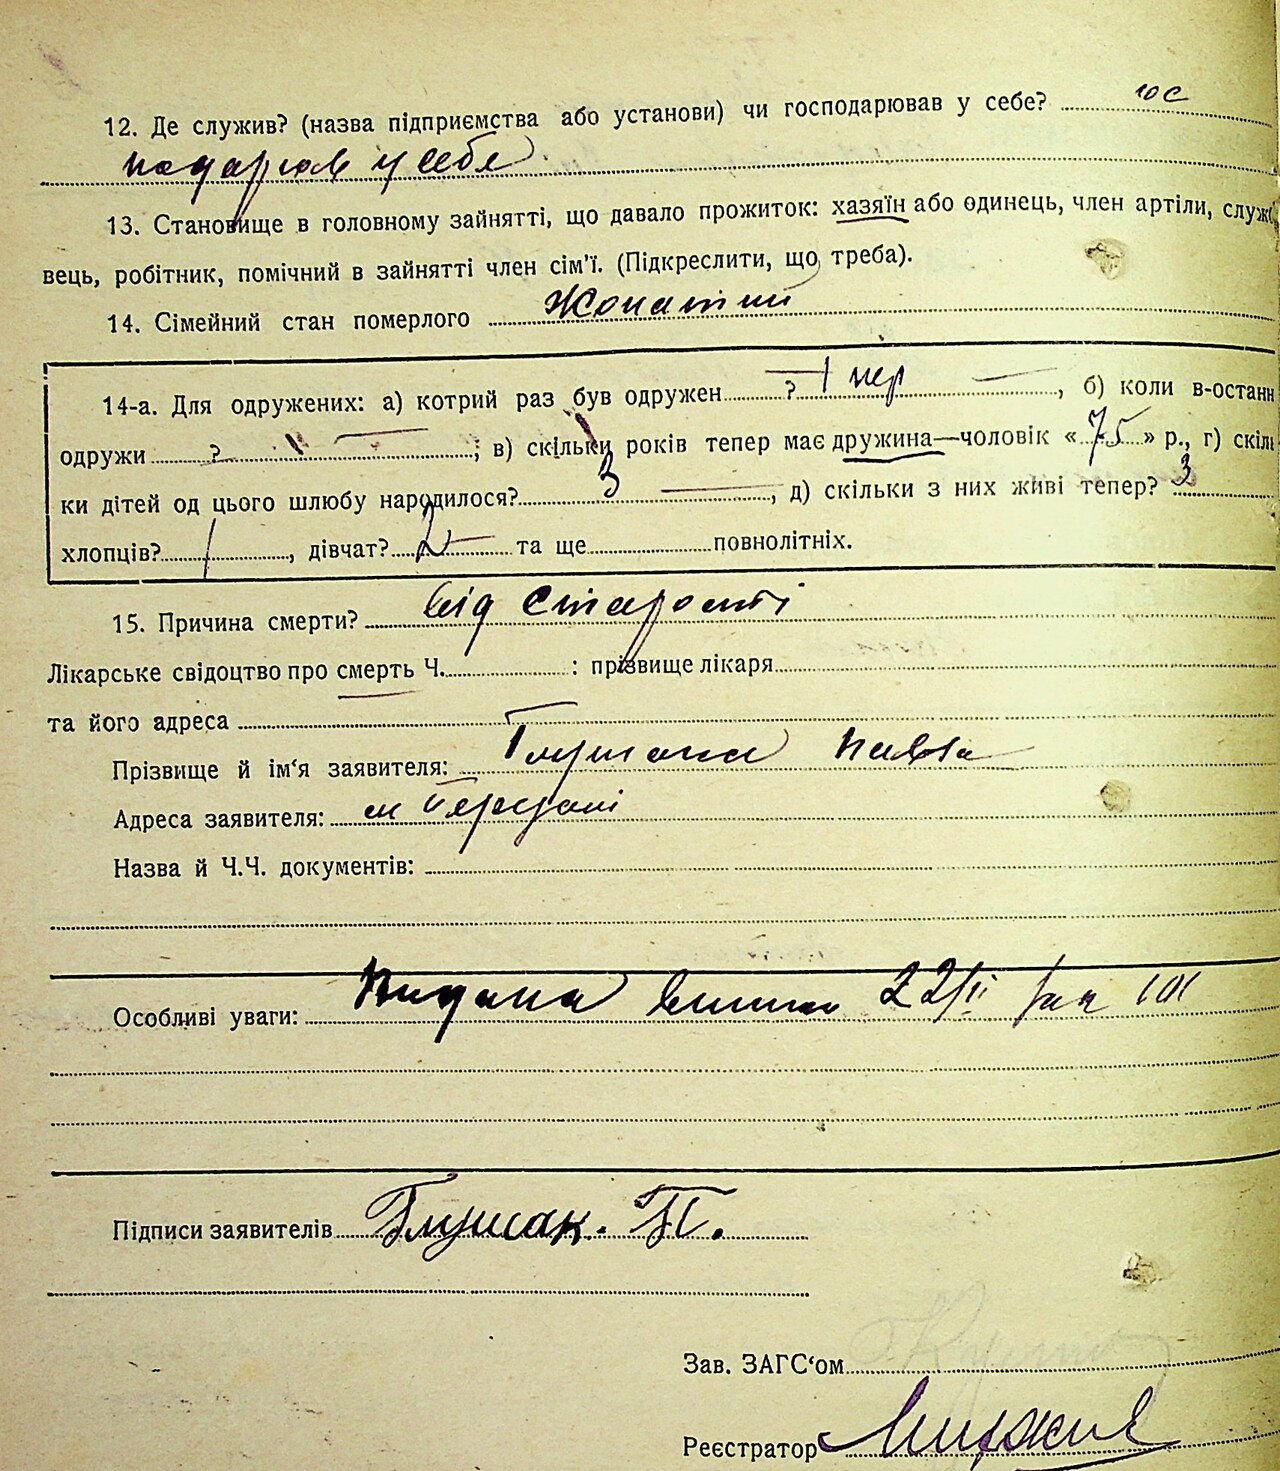 12. Де служив? (назва підприємства або установи) чи господарював у себе? гос
подарюв у себе
13. Становище в головному зайнятті, що давало прожиток: хазяїн або одинець, член артіли, служ
вець, робітник, помічний в зайнятті член сім'ї. (Підкреслити, що треба).
14. Сімейний стан померлого Жонатий
14-а. Для одружених: а) котрий раз був одружен ? 1 пер , б) коли в-останн
одружи ? ; в) скільки років тепер має дружина—чоловік « 75 » р., г) скіль
ки дітей од цього шлюбу народилося? 3 , д) скільки з них живі тепер? 3
хлопців? 1 , дівчат? 2 та ще повнолітніх.
15. Причина смерти? від старости
Лікарське свідоцтво про смерть Ч. : прізвище лікаря
та його адреса
Прізвище й ім'я заявителя: Павло
Адреса заявителя: м
Назва й Ч.Ч. документів:
Особливі уваги: Видана 22/II за 101
Підписи заявителів Глушак. П.
Зав. ЗАГС'ом
Реєстратор